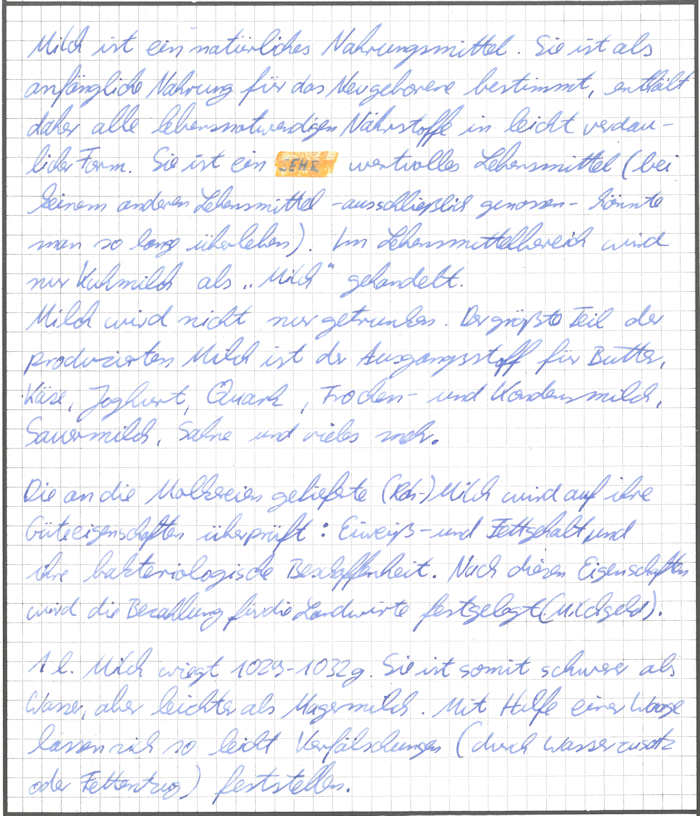 Milch ist ein natürliches Nahrungsmittel. Sie ist als
anfängliche Nahrung für das Neugeborene bestimmt, enthält
daher alle lebensnotwendigen Nährstoffe in leicht verdau-
licher Form. Sie ist ein SEHR wertvolles Lebensmittel (bei
keinem anderen Lebensmittel - ausschließlich genossen - könnte
man so lange überleben). Im Lebensmittelbereich wird
nur Kuhmilch als „Milch" gehandelt.
Milch wird nicht nur getrunken. Der größte Teil der
produzierten Milch ist der Ausgangsstoff für Butter,
Käse, Joghurt, Quark, Trocken- und Kondensmilch,
Sauermilch, Sahne und vieles mehr.
Die an die Molkereien gelieferte (Roh-)Milch wird auf ihre
Güteeigenschaften überprüft: Eiweiß- und Fettgehalt und
ihre bakteriologische Beschaffenheit. Nach diesen Eigenschaften
wird die Bezahlung für die Landwirte festgelegt (Milchgeld).
1 l. Milch wiegt 1029-1032g. Sie ist somit schwerer als
Wasser, aber leichter als Magermilch. Mit Hilfe einer Waage
lassen sich so leicht Verfälschungen (durch Wasserzusatz
oder Fettentzug) feststellen.